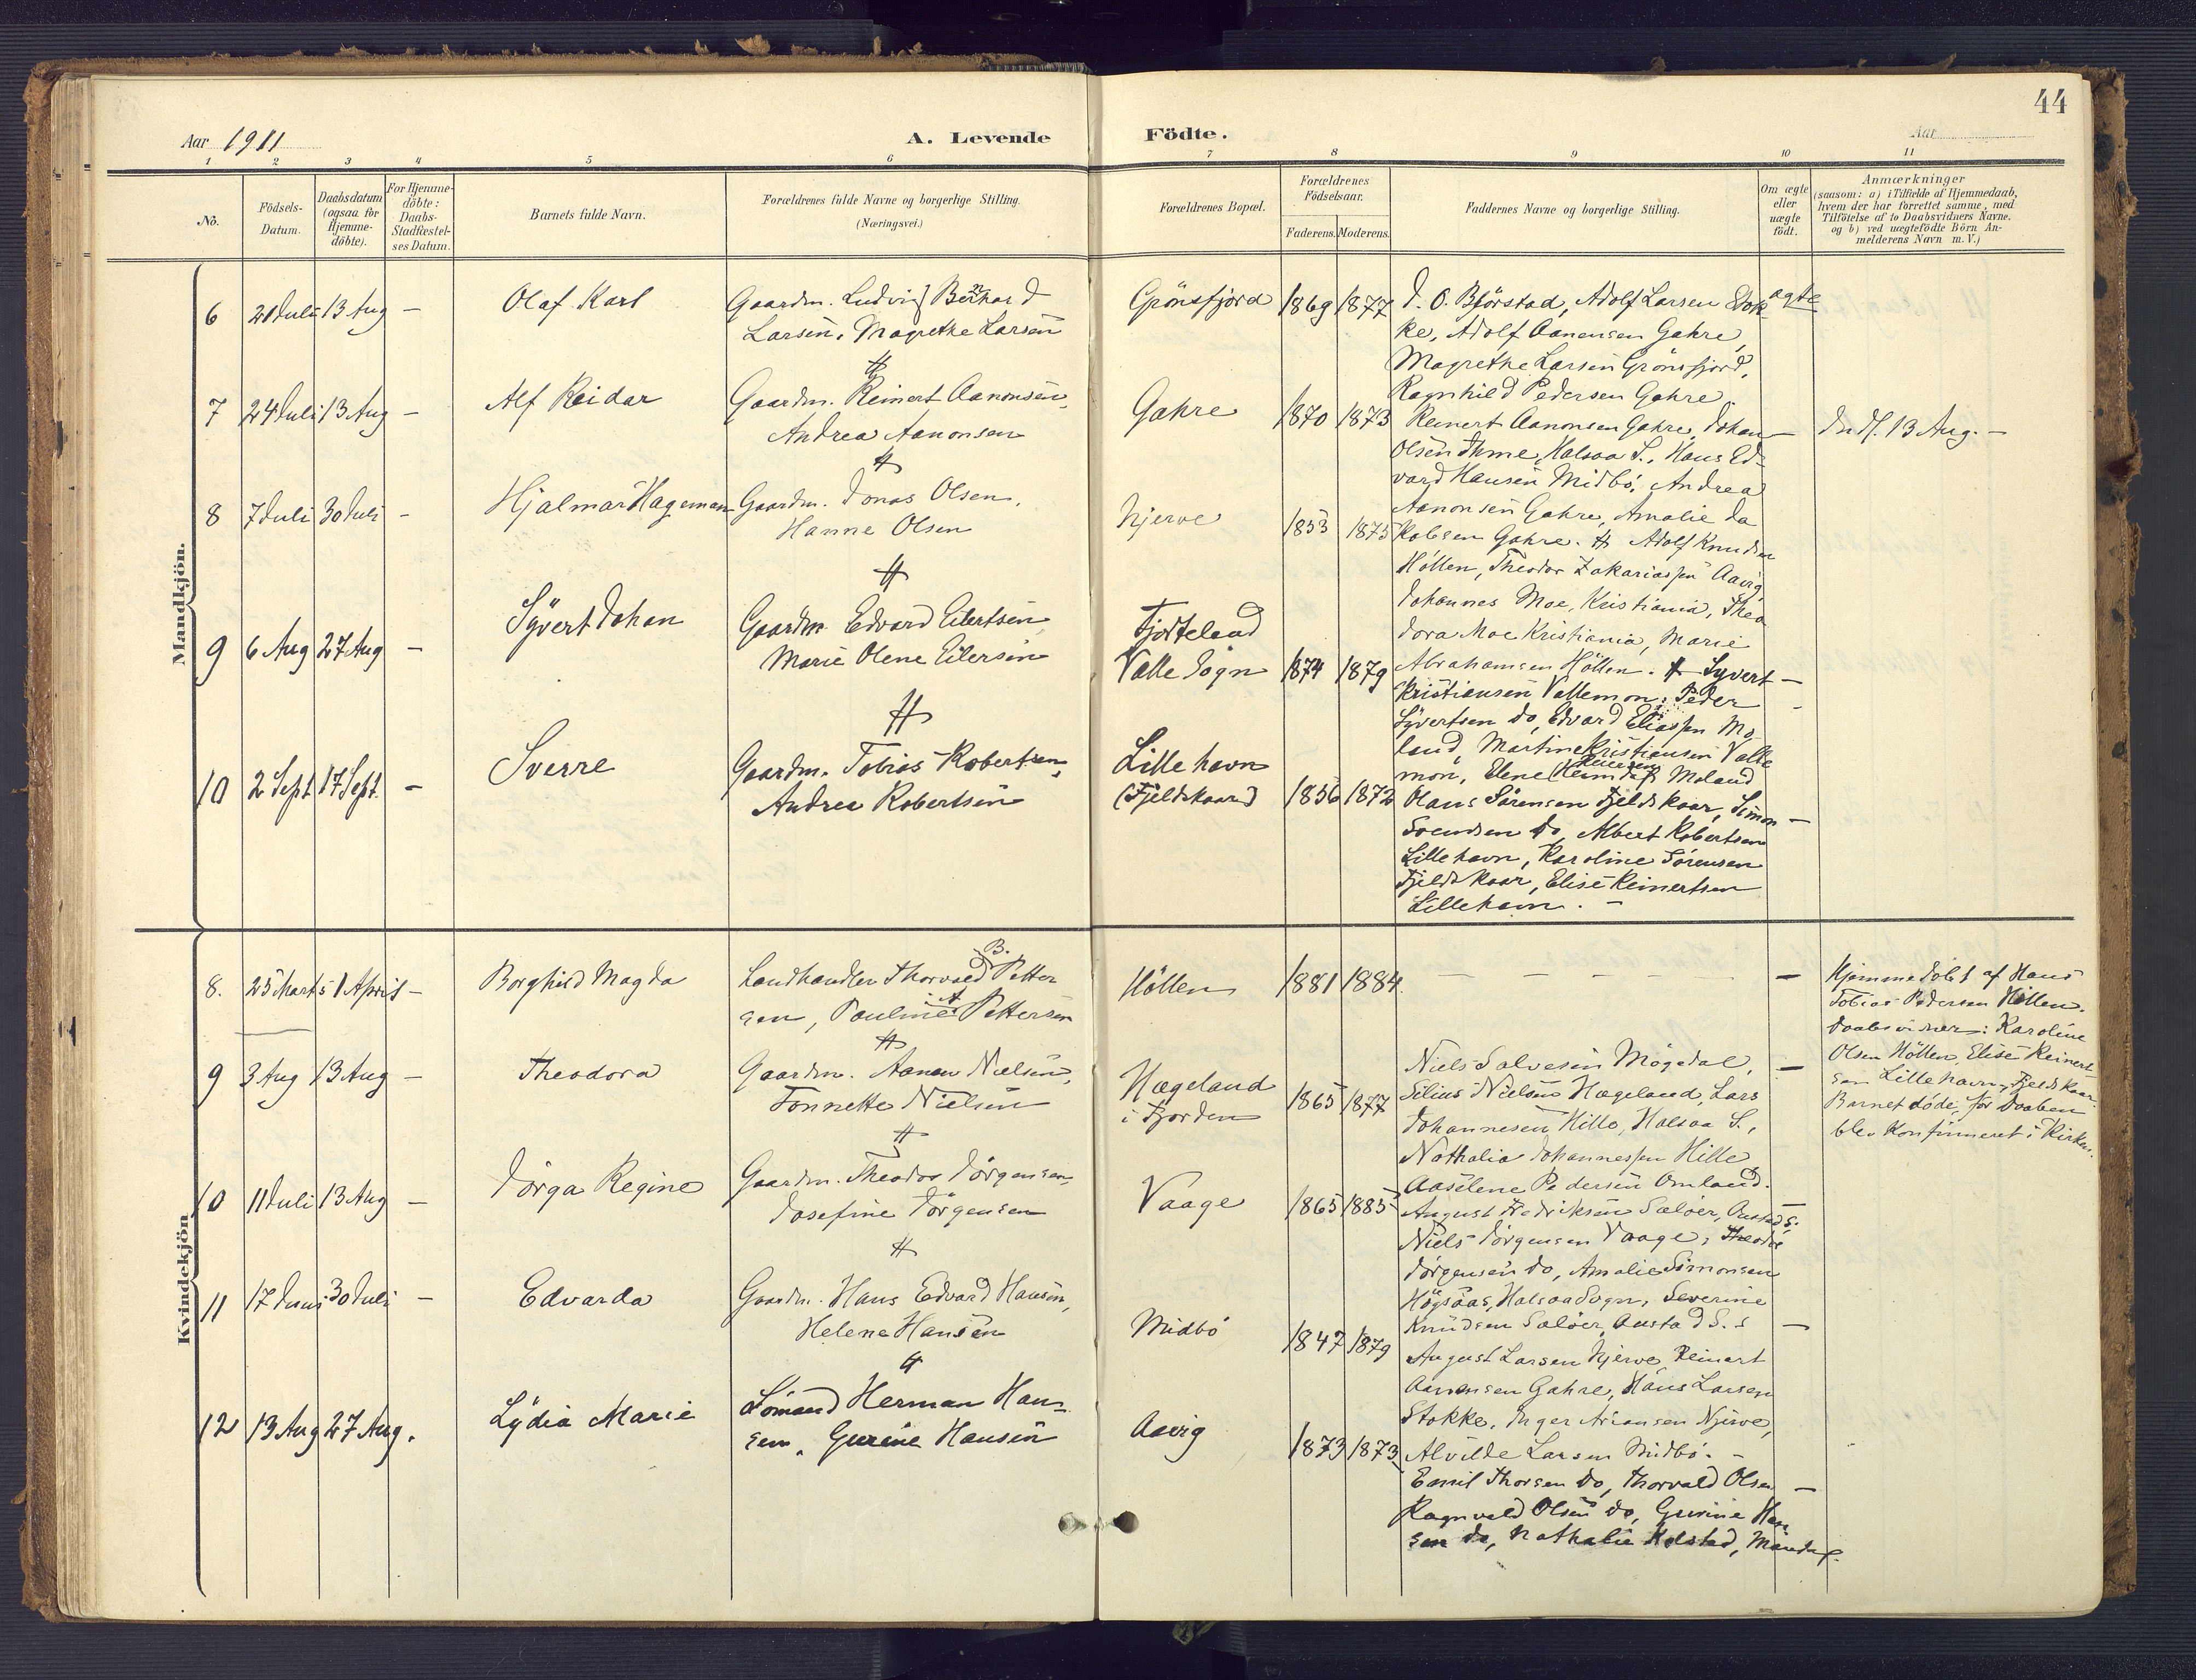 44
Aar 1911
A. Levende Födte.
Aar
1 2 3 4 5 6 7 8 9 10 11
No.
Födsels-Datum.
Daabsdatum (ogsaa for Hjemme-döbte).
For Hjemme-döbte: Daabs-Stadfæstel-ses Datum.
Barnets fulde Navn.
Forældrenes fulde Navne og borgerlige Stilling. (Næringsvei.)
Forældrenes Bopæl.
Forældrenes Födselsaar.
Faderens. Moderens.
Faddernes Navne og borgerlige Stilling.
Om ægte eller uægte födt.
Anmærkninger
(saasom: a) i Tilfælde af Hjemmedaab,
hvem der har forrettet samme, med
Tilföielse af to Daabsvidners Navne.
og b) ved uægtefödte Börn An-
melderens Navn m. V.)
Mandkjön.
6 21 Juli 13 Aug - Olaf Karl
Gaardm. Ludvig Bernhard
Larsen, Magrethe Larsen
Grönsfjord 1869 1877
J. O. Björstad, Adolf Larsen Stok-
ke, Adolf Aanensen Gahre,
Magrethe Larsen Grönsfjord,
Ragnhild Pedersen Gahre.
ægte
7 24 Juli 13 Aug - Alf Reidar
Gaardm. Reinert Aanonsen,
Andrea Aanonsen
Gahre 1870 1873
Reinert Aanonsen Gahre, Johan
Olsen Thme, Halsaa S., Hans Ed-
vard Hansen Midbö, Andrea
Aanonsen Gahre, Amalie Ja
kobsen Gahre.
- Indf. 13 Aug. -
8 7 Juli 30 Juli - Hjalmar Hageman
Gaardm. Jonas Olsen,
Hanne Olsen
Njerve 1853 1875
Adolf Knudsen
Höllen, Theodor Zakariassen Aavig
Johannes Moe, Kristiania, Theo
dora Moe Kristiania, Marie
Abrahamsen Höllen.
9 6 Aug 27 Aug - Syvert Johan
Gaardm. Edvard Eilertsen
Marie Olene Eilersen
Fjorteland
Valle Sogn 1874 1879
Syvert -
Kristiensen Vallemon, Peder
Syvertsen do, Edvard Eliassen Mo-
land, Martine Kristiensen Valle
mon, Elene Moland
10 2 Sept 17 Sept. - Sverre
Gaardm. Tobias Robertsen,
Andrea Robertsen
Lillehavn
(Fjeldskaar) 1856 1872
Olaus Sörensen Fjeldskaar, Simon -
Svendsen do, Albert Robertsen
Lillehavn, Karoline Sörensen
Fjeldskaar, Elise Reinertsen
Lillehavn. -
Kvindekjön
8. 25 Marts 1 April - Borghild Magda
Landhandler Thorvald B. Petter
sen, Pauline A. Pettersen
Höllen 1881 1884
- - - - -
Hjemmedöbt af Hans
Tobias Pedersen Höllen.
Daabsvidner: Karoline
Olsen Höllen, Elise Reinert-
sen Lillehavn, Fjeldskaar.
Barnet döde, för Daaben
blev konfirmeret i Kirken.
9 3 Aug 13 Aug - Theodora
Gaardm. Aanen Nielsen,
Tonnette Nielsen
Hægeland
i Fjorden 1865 1877
Niels Salvesen Mögedal, -
Silius Nielsen Hægeland, Lars
Johannesen Hille, Halsaa S.,
Nathalia Johannessen Hille
Aaselene Pedersen Omland.
10 11 Juli 13 Aug - Jörga Regine
Gaardm. Theodor Jörgensen
Josefine Jörgensen
Vaage 1865 1885
August Fredriksen Salöer, Austad S.
Niels Jörgensen Vaage, Theodor
Jörgensen do, Amalie Simonsen
Högsaas, Halsaa Sogn, Severine
Knudsen Salöer, Austad S.
11 17 Juni 30 Juli - Edvarda
Gaardm. Hans Edvard Hansen,
Helene Hansen
Midbö 1847 1879
August Larsen Njerve, Reinert
Aanensen Gahre, Hans Larsen
Stokke, Inger Arians​en Njerve,
Alvilde Larsen Midbö. -
12 13 Aug 27 Aug. Lydia Marie
Sömand Herman Han-
sen, Gurine Hansen
Aavig 1873 1873
Emil Thorsen do, Thorvald Olsen -
Ragnvald Olsen do, Gurine Han
sen do, Nathalie Holstad, Mandal.